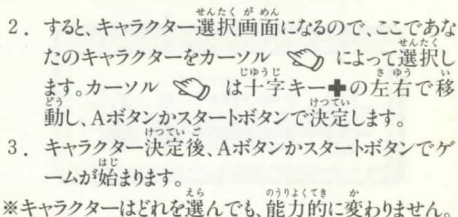 2. すると、キャラクター選択画面になるので、ここであな
たのキャラクターをカーソル によって選択し
ます。カーソル は十字キー✚の左右で移
動し、Aボタンかスタートボタンで決定します。
3. キャラクター決定後、Aボタンかスタートボタンでゲ
ームが始まります。
※キャラクターはどれを選んでも、能力的に変わりません。